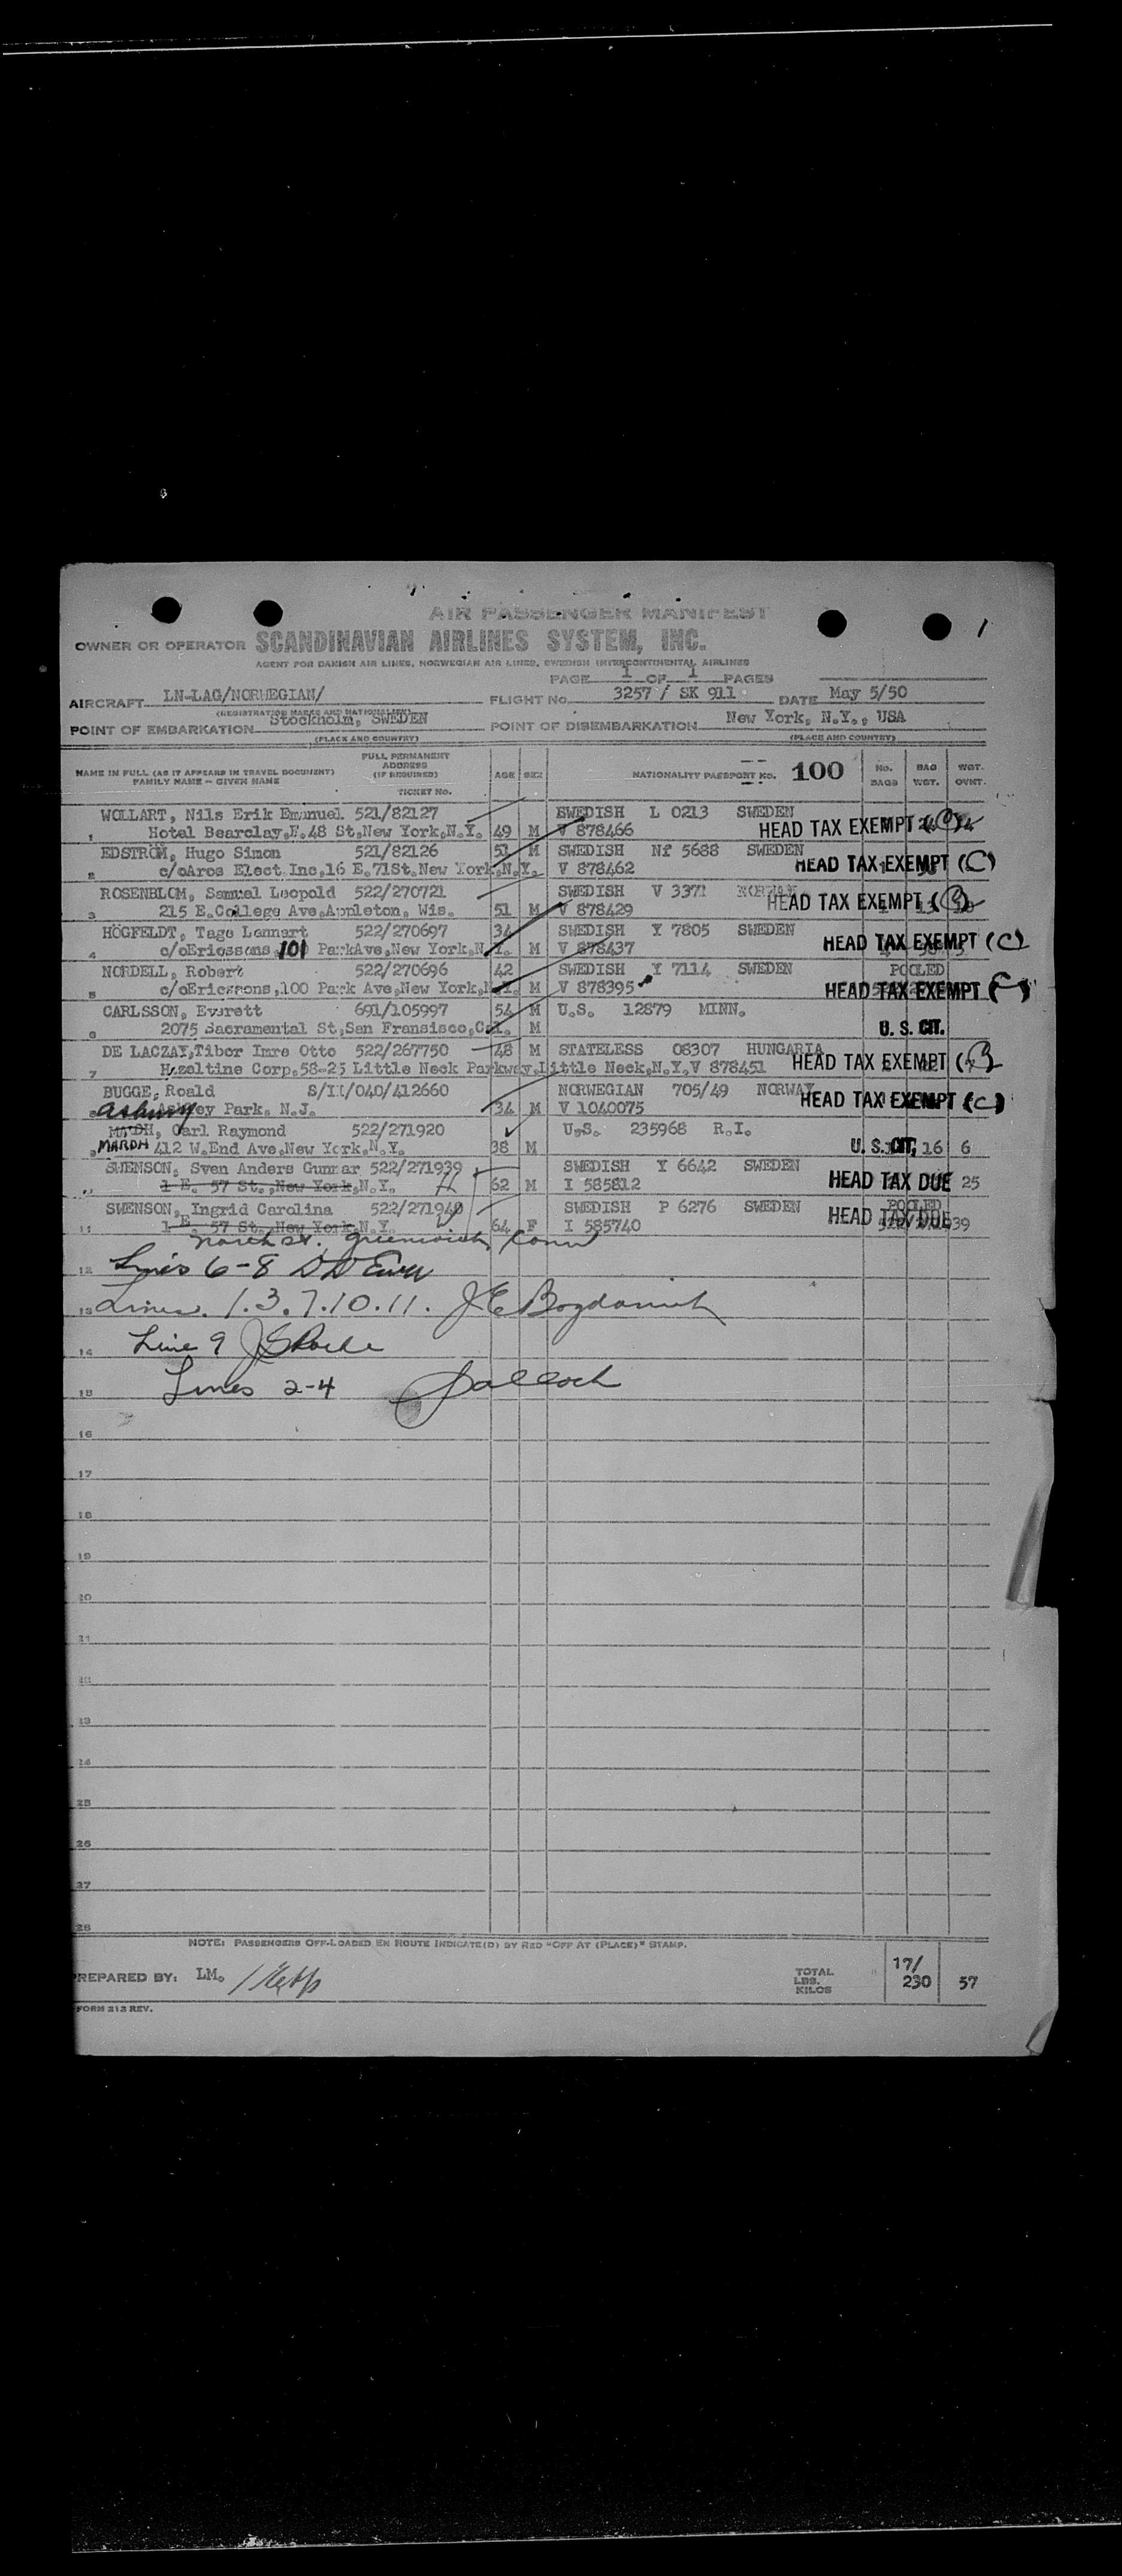 AIR PASSENGER MANIFEST
OWNER OR OPERATOR SCANDINAVIAN AIRLINES SYSTEM, INC. 1
AGENT FOR DANISH AIR LINES, NORWEGIAN AIR LINES, SWEDISH INTERCONTINENTAL AIRLINES
PAGE 1 OF 1 PAGES
AIRCRAFT LN-LAG/NORWEGIAN/ FLIGHT No. 3257 / SK 911 DATE May 5/50
(REGISTRATION MARKS AND NATIONALITY)
POINT OF EMBARKATION Stockholm, SWEDEN POINT OF DISEMBARKATION New York, N.Y., USA
(PLACE AND COUNTRY) (PLACE AND COUNTRY)
NAME IN FULL (AS IT APPEARS IN TRAVEL DOCUMENT) FAMILY NAME - GIVEN NAME FULL PERMANENT ADDRESS (IF REQUIRED) TICKET No. AGE SEX NATIONALITY PASSPORT No. 100 No. BAGS BAG WGT. WGT. OVNT.
WOLLART, Nils Erik Emanuel 521/82127 SWEDISH L 0213 SWEDEN
1 Hotel Bearclay,E.48 St,New York,N.Y. 49 M V 878466 HEAD TAX EXEMPT (C)
EDSTRÖM, Hugo Simon 521/82126 51 M SWEDISH Nf 5688 SWEDEN
2 c/oAros Elect Inc,16 E.71St.New York,N.Y. V 878462 HEAD TAX EXEMPT (C)
ROSENBLOM, Samual Leopold 522/270721 SWEDISH V 3371
3 215 E.College Ave,Appleton, Wis. 51 M V 878429 HEAD TAX EXEMPT (B)
HÖGFELDT, Tage Lennart 522/270697 34 SWEDISH Y 7805 SWEDEN
4 c/oEricssons,101 ParkAve,New York,N.Y. M V 878437 HEAD TAX EXEMPT (C)
NORDELL, Robert 522/270696 42 SWEDISH Y 7114 SWEDEN POOLED
5 c/oEricssons,100 Park Ave,New York,N.Y. M V 878395 HEAD TAX EXEMPT (C)
CARLSSON, Everett 691/105997 54 M U.S. 12879 MINN.
6 2075 Sacramental St,San Fransisco,Cal. M U. S. CIT.
DE LACZAY,Tibor Imre Otto 522/267750 48 M STATELESS 08307 HUNGARIA
7 Hazeltine Corp,58-25 Little Neck Parkway,Little Neck,N.Y,V 878451 HEAD TAX EXEMPT (B)
BUGGE, Roald S/II/040/412660 NORWEGIAN 705/49 NORWAY
8 Asbury Park, N.J. 34 M V 1040075 HEAD TAX EXEMPT (C)
Carl Raymond 522/271920 U.S. 235968 R.I.
9 MARDH 412 W.End Ave,New York,N.Y. 38 M U. S. CIT. 16 6
SWENSON, Sven Anders Gunnar 522/271939 SWEDISH Y 6642 SWEDEN
1 E. 57 St.,New York,N.Y. 62 M I 585812 HEAD TAX DUE 25
SWENSON, Ingrid Carolina 522/271940 SWEDISH P 6276 SWEDEN POOLED
11 1 E. 57 St. New York,N.Y. 64 F I 585740 HEAD TAX DUE 39
North St. Greenwich, Conn
12 Lines 6-8
13 Lines. 1.3.7.10.11. J E Bogdanich
14 Line 9
15 Lines 2-4
16
17
18
19
20
21
22
23
24
25
26
27
28
NOTE: PASSENGERS OFF-LOADED EN ROUTE INDICATE(D) BY RED "OFF AT (PLACE)" STAMP.
PREPARED BY: LM. TOTAL LBS. KILOS 17/ 230 57
FORM 212 REV.